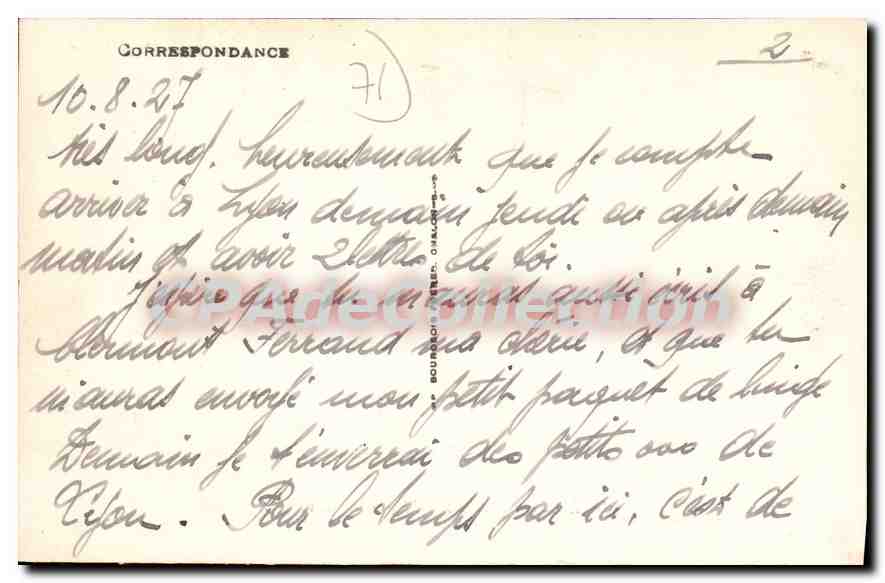 CORRESPONDANCE
2
71
10.8.27
très long. heureusement que je compte
arriver à Lyon demain jeudi ou après demain
matin et avoir 2 lettres de toi.
J'espère que tu m'auras aussi écrit à
Clermont Ferrand ma chérie, et que tu
m'auras envoyé mon petit paquet de linge
Demain je t'enverrai des petits ooo de
Lyon. Pour le temps par ici, c'est de
BOURGEOIS FRERES, CHALON-S-S
CPAdeCollection